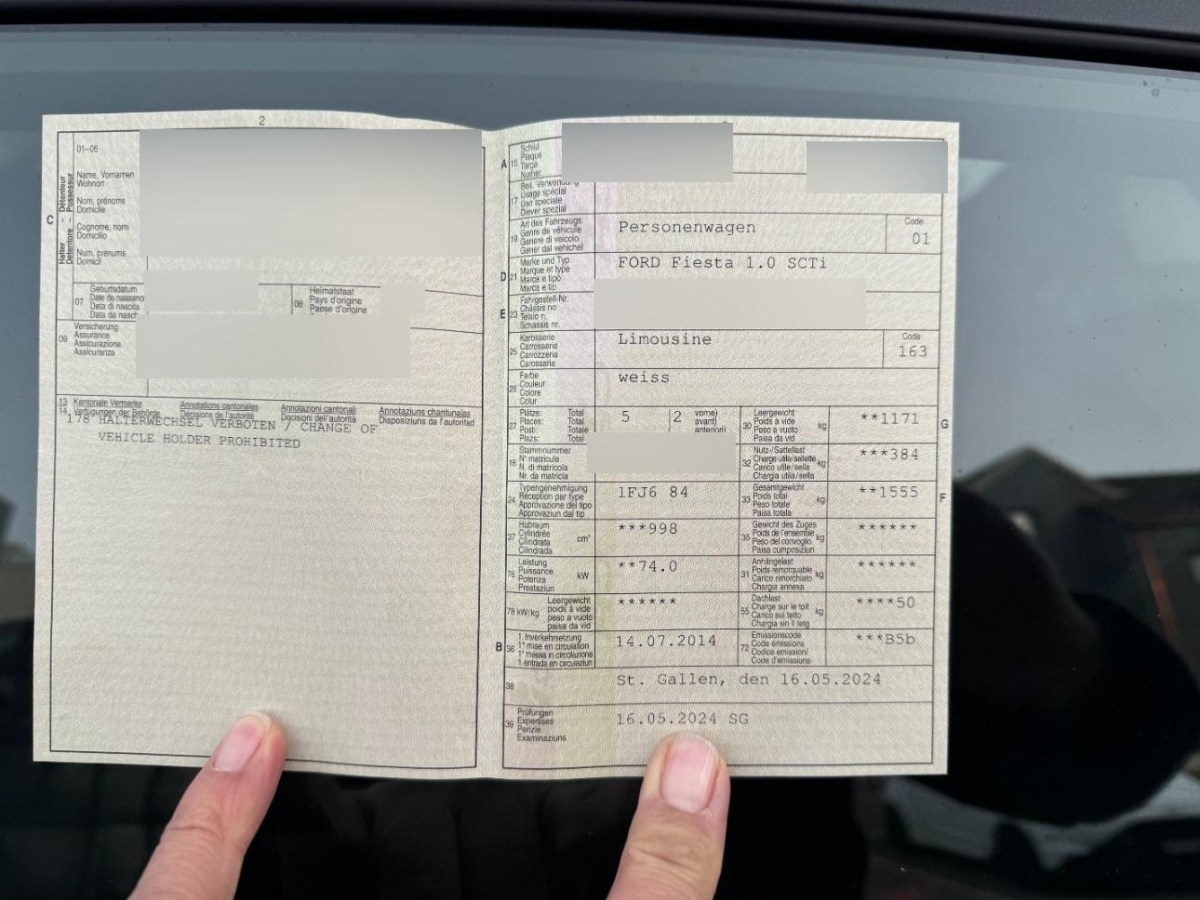 2
01-06
Halter – Détenteur
Detentore – Possessur
Name, Vornamen
Wohnort
Nom, prénoms
Domicile
Cognome, nomi
Domicilio
Num, prenums
Domicil
C
07
Geburtsdatum
Date de naissanc
Data di nascita
Data da nasch
08
Heimatstaat
Pays d'origine
Paese d'origine
09
Versicherung
Assurance
Assicurazione
Assicuranza
13 Kantonale Vermerke Annotations cantonales Annotazioni cantonali Annotaziuns chantunalas
14 Verfügungen der Behörde Décisions de l'autorité Decisioni dell'autorità Disposiziuns da l'autoritad
178 HALTERWECHSEL VERBOTEN / CHANGE OF
VEHICLE HOLDER PROHIBITED
A
15
Schild
Plaque
Targa
Numer
17
Bes. Verwendung
Usage spécial
Uso speciale
Diever spezial
19
Art des Fahrzeugs
Genre de véhicule
Genere di veicolo
Gener dal vehichel
Personenwagen
Code
01
D
21
Marke und Typ
Marque et type
Marca e tipo
Marca e tip
FORD Fiesta 1.0 SCTi
E
23
Fahrgestell-Nr.
Châssis no
Telaio n.
Schassis nr.
25
Karosserie
Carrosserie
Carrozzeria
Carossaria
Limousine
Code
163
26
Farbe
Couleur
Colore
Colur
weiss
27
Plätze: Total
Places: Total
Posti: Totale
Plazs: Total
5
2
vorne)
avant)
anteriori)
30
Leergewicht
Poids à vide
Peso a vuoto
Paisa da vid
kg
**1171
G
18
Stammnummer
N° matricule
N. di matricola
Nr. da matricla
32
Nutz-/Sattellast
Charge utile/sellette
Carico utile/sella
Chargia utila/sella
kg
***384
24
Typengenehmigung
Réception par type
Approvazione del tipo
Approvaziun dal tip
1FJ6 84
33
Gesamtgewicht
Poids total
Peso totale
Paisa totala
kg
**1555
F
37
Hubraum
Cylindrée
Cilindrata
Cilindrada
cm³
***998
35
Gewicht des Zuges
Poids de l'ensemble
Peso del convoglio
Paisa cumposiziun
kg
******
76
Leistung
Puissance
Potenza
Prestaziun
kW
**74.0
31
Anhängelast
Poids remorquable
Carico rimorchiato
Chargia annexa
kg
******
78 kW/kg
Leergewicht
poids à vide
peso a vuoto
paisa da vid
******
55
Dachlast
Charge sur le toit
Carico sul tetto
Chargia sin il tetg
kg
****50
B
36
1. Inverkehrsetzung
1re mise en circulation
1a messa in circolazione
1. entrada en circulaziun
14.07.2014
72
Emissionscode
Code émissions
Codice emissioni
Code d'emissiuns
***B5b
38
St. Gallen, den 16.05.2024
39
Prüfungen
Expertises
Perizie
Examinaziuns
16.05.2024 SG